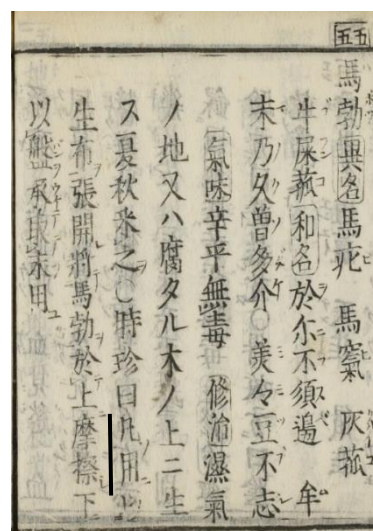 五五
馬勃 異名 馬疕 馬窼 灰菰
牛屎菰 和名 於尓不須邉 牟
末乃久曽多介 〇 美々豆不志
氣味 辛平無毒 修治 濕氣
ノ地又ハ腐タル木ノ上ニ生
ス夏秋采之〇時珍曰凡用
生布張開將馬勃於上摩擦下
以盤承取末用